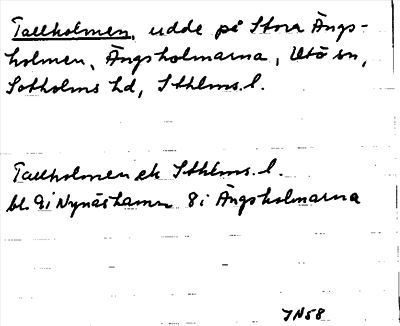 Tallholmen, udde på Stora Ängs-
holmen, Ängsholmarna, Utö sn,
Sotholms hd, Sthlms. l.
Tallholmen ek Sthlms. l.
bl. 9i Nynäshamn 8i Ängsholmarna
JN58